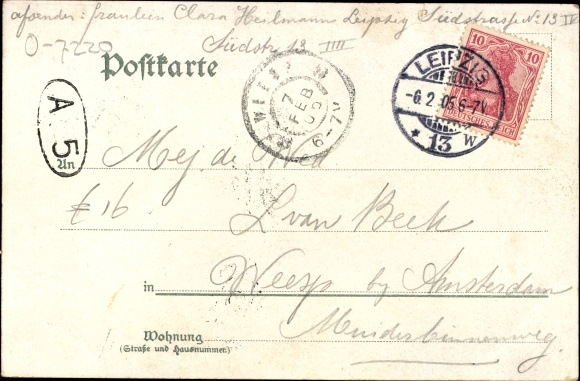 afsender: fraulein Clara Heilmann Leipzig Südstrasse No 13 IV
O-7220
Südstr 13 IIII
Postkarte
10 10
DEUTSCHES REICH
LEIPZIG
-6.2.05.6-7V
* 13 W
WEESP
7 FEB 05
6-7V
A 5
An
Mej de Wed
€16
L van Beek
in Weesp by Amsterdam
Muiderbinnenweg.
Wohnung
(Straße und Hausnummer.)